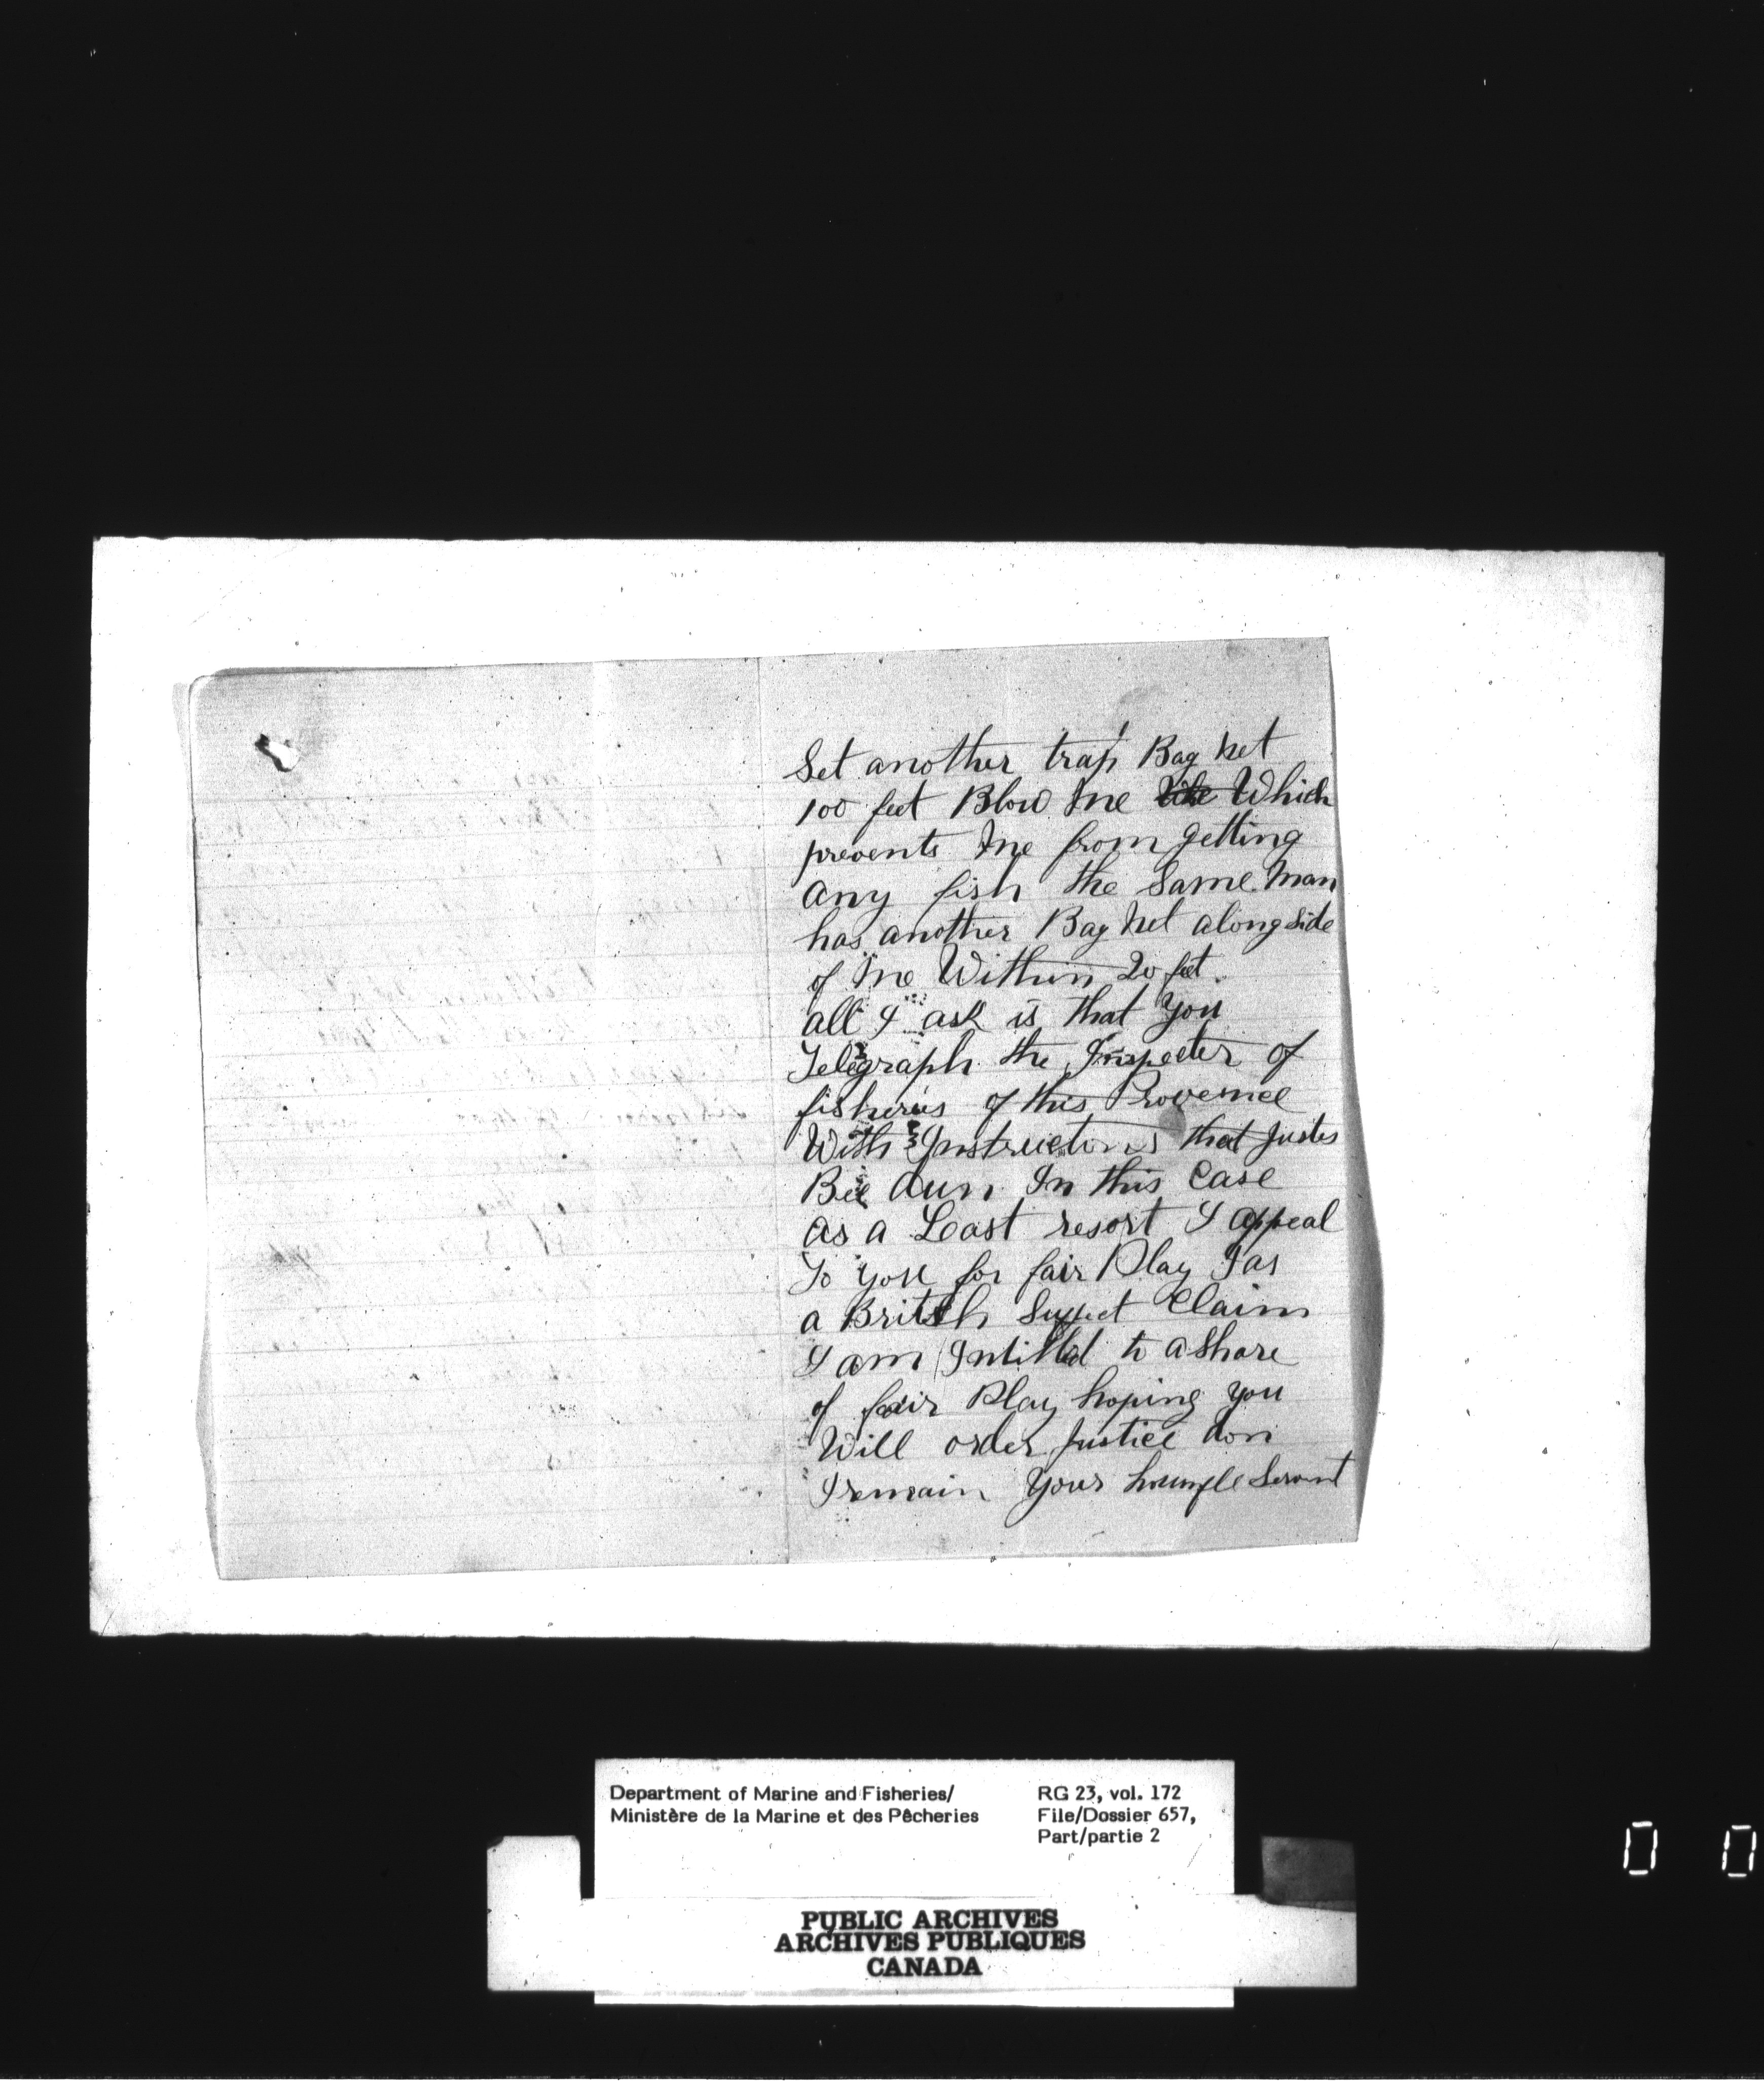 Set another trap Bag net
100 feet Blow me Which
prevents me from getting
any fish the Same man
has another Bag net along side
of me Within 20 feet.
all I ask is that You
Telegraph the Inspecter of
fisheries of this Provence
With Instructions that Justes
Bee dun In this Case
as a Least resort I appeal
To you for fair Play I as
a British Suject Claim
I am Intitled to a share
of fair Play hoping you
Will order Justice don
I remain Your humple Servant
Department of Marine and Fisheries/
Ministère de la Marine et des Pêcheries
RG 23, vol. 172
File/Dossier 657,
Part/partie 2
PUBLIC ARCHIVES
ARCHIVES PUBLIQUES
CANADA
0 0